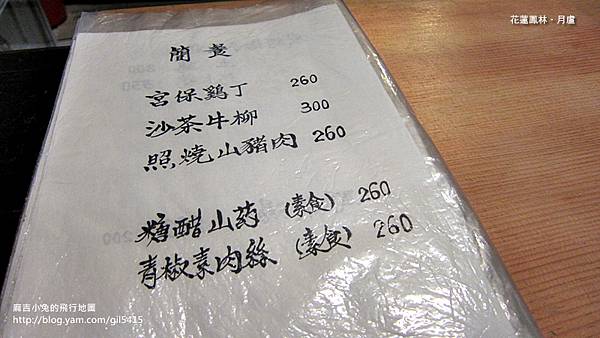 花蓮鳳林‧月廬
簡煮
宮保鷄丁 260
沙茶牛柳 300
照燒山豬肉 260
糖醋山药 (素食) 260
青椒素肉絲 (素食) 260
麻吉小兔的飛行地圖
http://blog.yam.com/gil5415